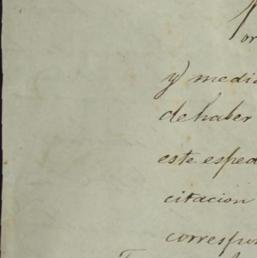 y medi
de haber
este espe
citacion
correspon